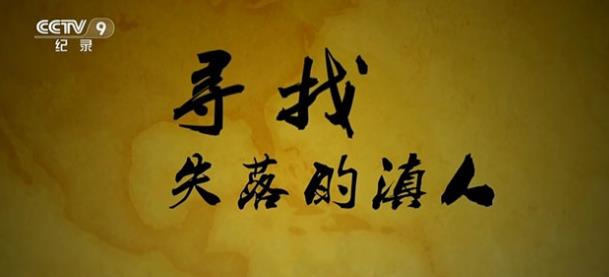 CCTV 9
纪 录
寻找
失落的滇人